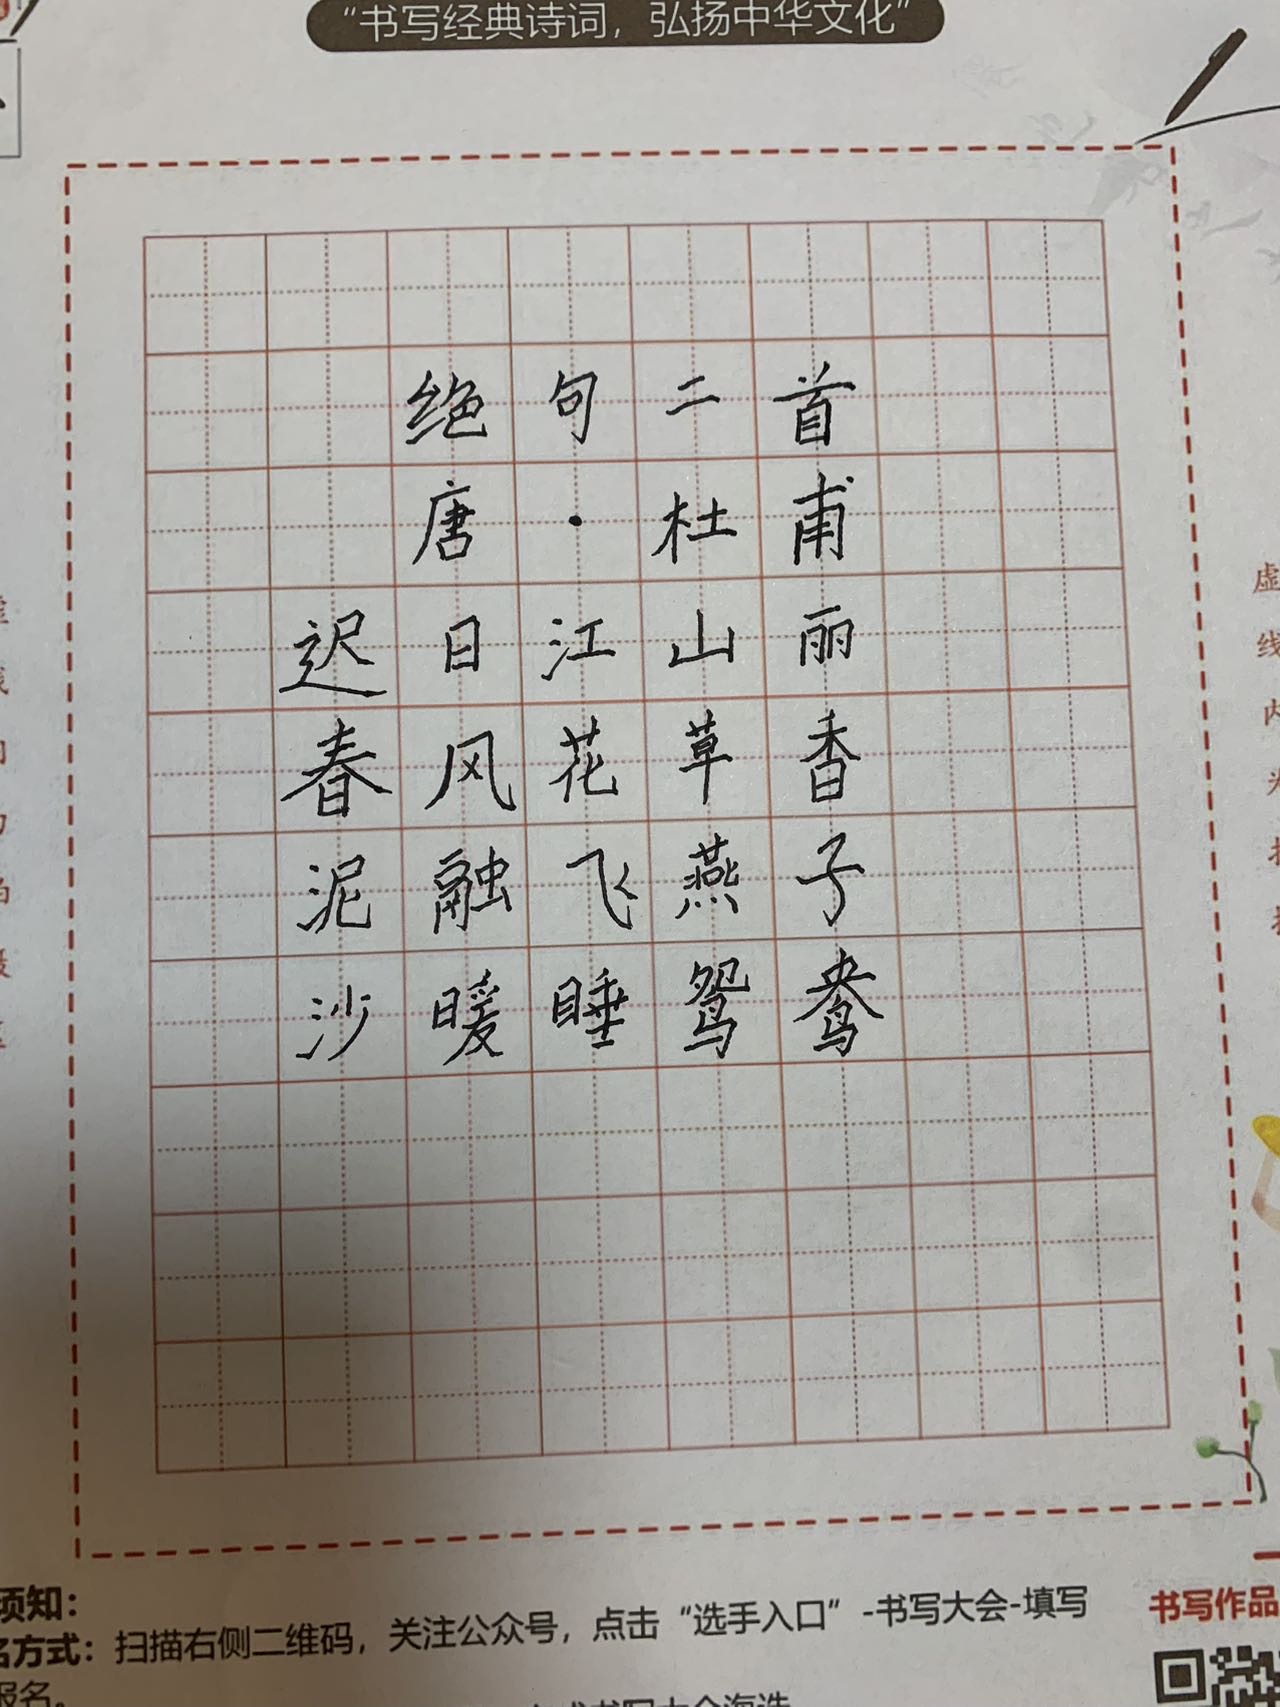 “书写经典诗词，弘扬中华文化”
绝句二首
唐·杜甫
迟日江山丽
春风花草香
泥融飞燕子
沙暖睡鸳鸯
须知：
名方式：扫描右侧二维码，关注公众号，点击“选手入口”-书写大会-填写
报名。
书写作品